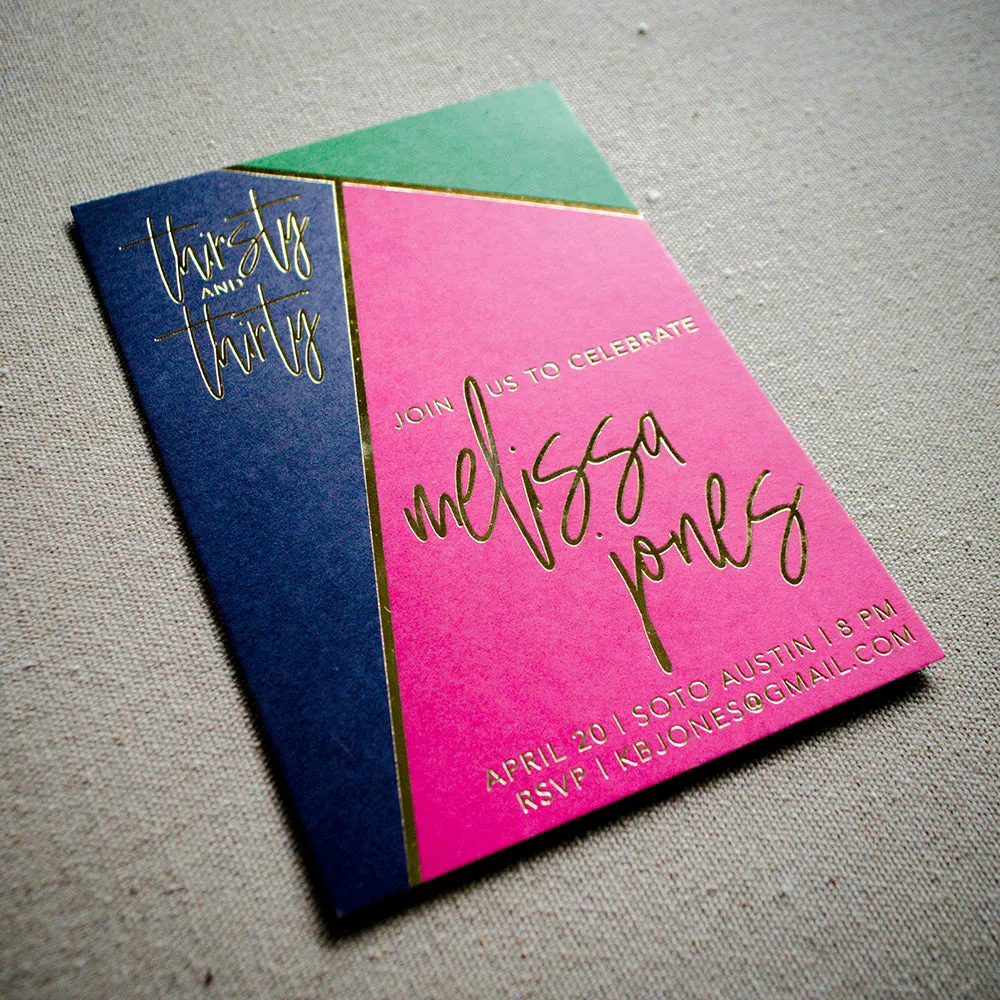 thirsty
AND
thirty
JOIN US TO CELEBRATE
melissa
jones
APRIL 20 | SOTO AUSTIN | 8 PM
RSVP | KBJONES@GMAIL.COM